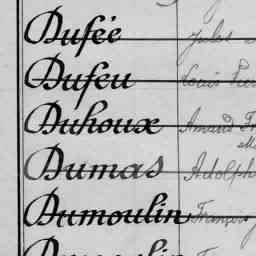 Dufée Jules
Dufeu Louis
Duhoux Amand
Dumas Adolph
Dumoulin François